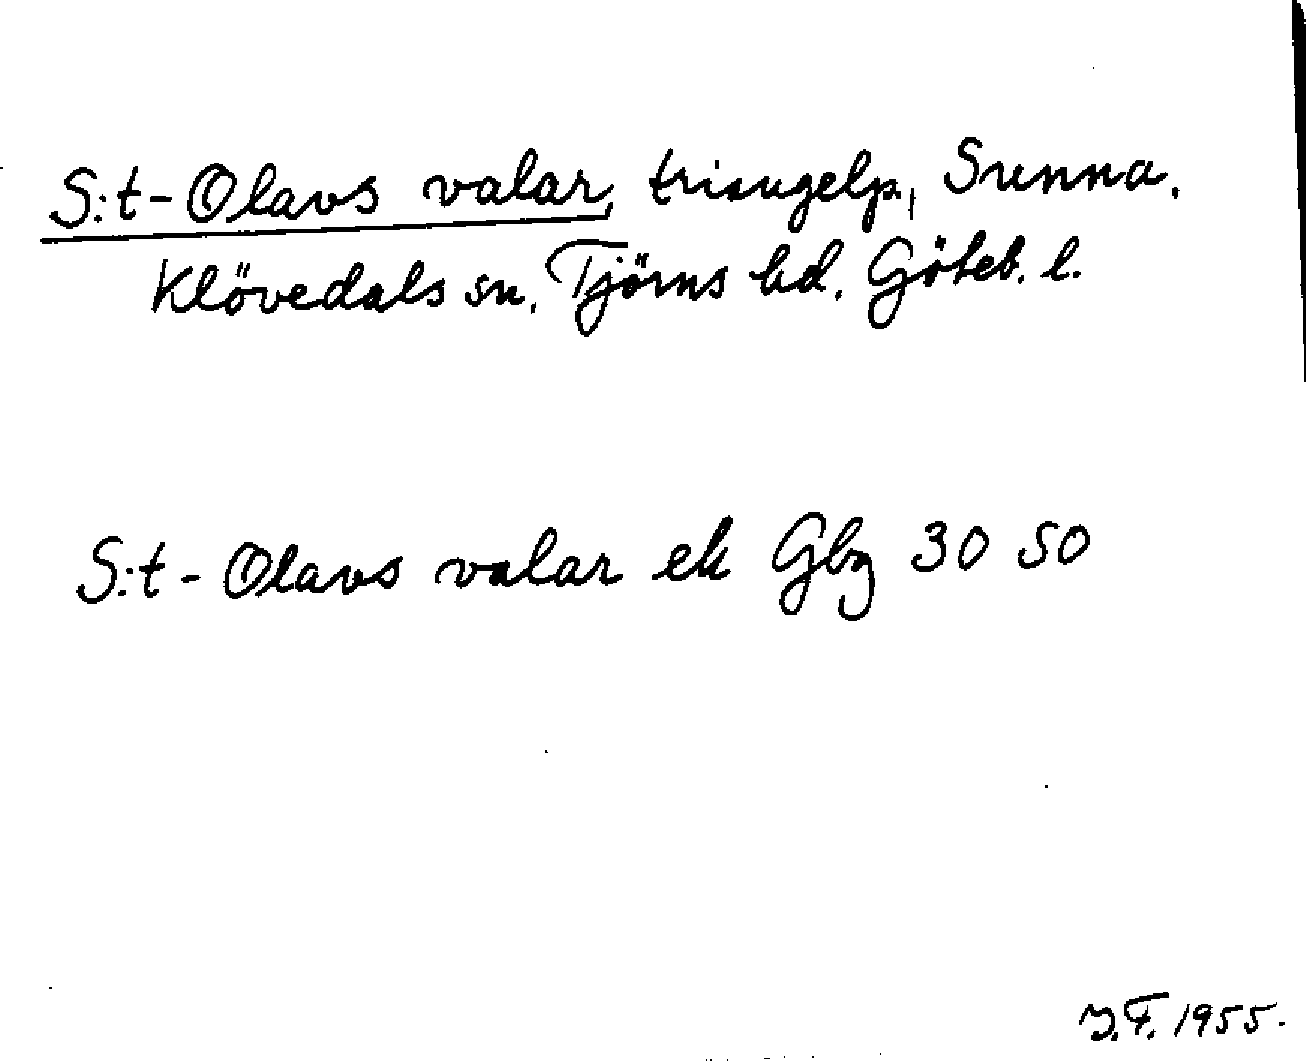 S:t-Olavs valar, triangelp., Sunna.
Klövedals sn. Tjörns hd. Göteb. l.
S:t-Olavs valar ek Gbg 30 50
J.F. 1955.